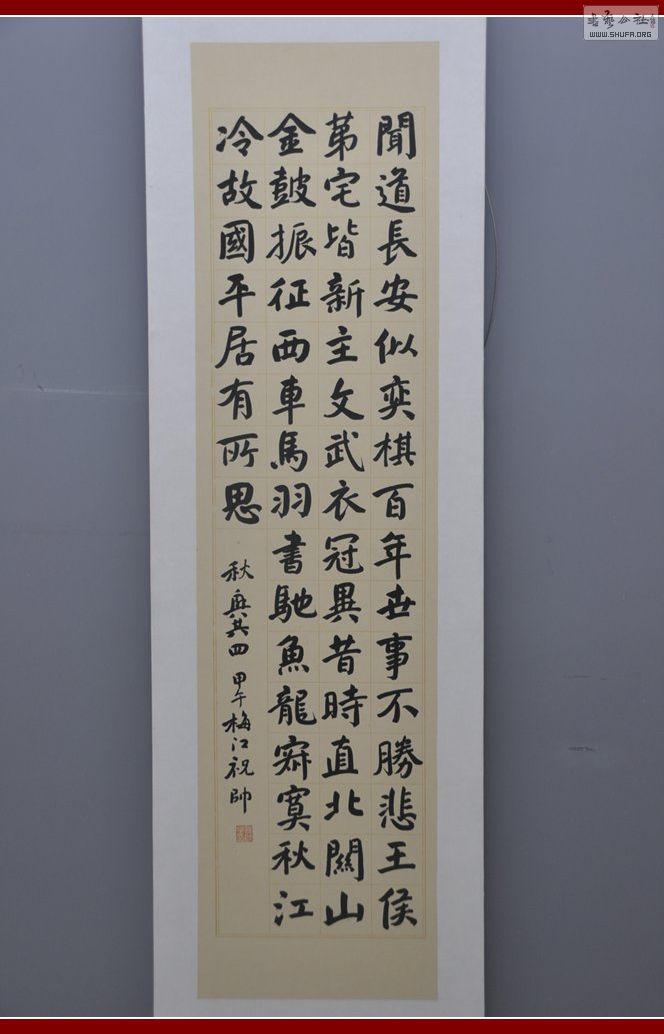 聞道長安似奕棋百年世事不勝悲王侯
苐宅皆新主文武衣冠異昔時直北關山
金鼓振征西車馬羽書馳魚龍寂寞秋江
冷故國平居有所思
秋興其四 甲午梅江祝帥
書藝公社
WWW.SHUFA.ORG